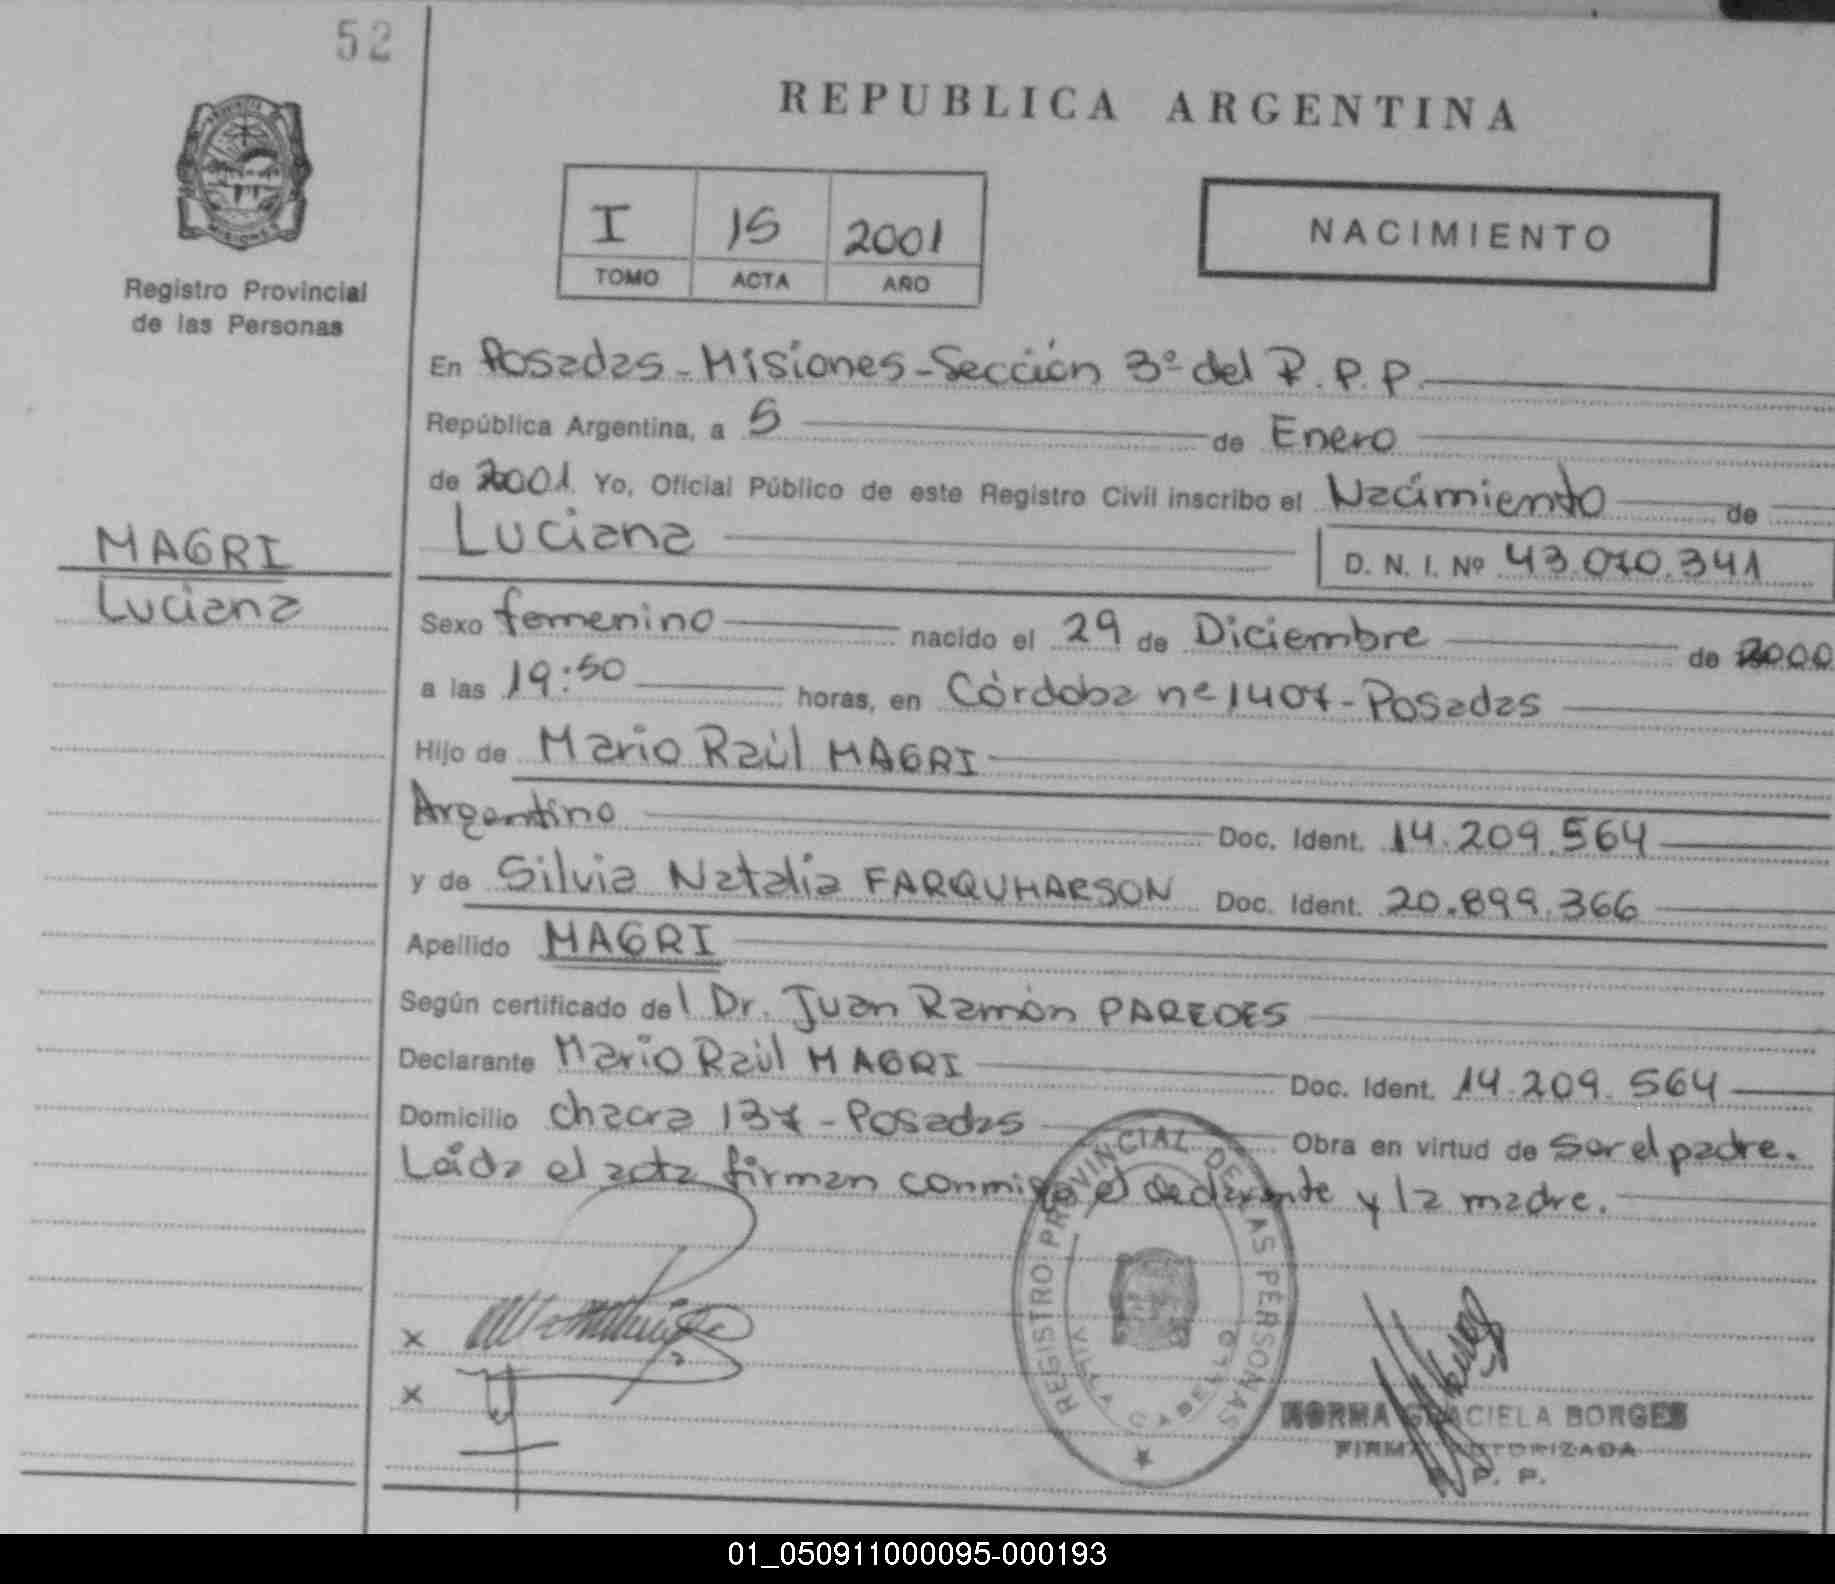 52
REPUBLICA ARGENTINA
I 15 2001
TOMO ACTA AÑO
NACIMIENTO
Registro Provincial
de las Personas
En Posadas-Misiones-Sección 3º del R.P.P.
República Argentina, a 5 de Enero
de 2001. Yo, Oficial Público de este Registro Civil inscribo el Nacimiento de
Luciana
D. N. I. Nº 43.070.341
MAGRI
Luciana
Sexo femenino nacido el 29 de Diciembre de 2000
a las 19:50 horas, en Córdoba nº 1407-Posadas
Hijo de Mario Raúl MAGRI
Argentino Doc. Ident. 14.209.564
y de Silvia Natalia FARQUHARSON Doc. Ident. 20.899.366
Apellido MAGRI
Según certificado del Dr. Juan Ramón PAREDES
Declarante Mario Raúl MAGRI Doc. Ident. 14.209.564
Domicilio chacra 137-Posadas Obra en virtud de Ser el padre.
Leída el acta firman conmigo el declarante y la madre.
x
x
REGISTRO PROVINCIAL DE LAS PERSONAS
VILLA CABELLO
NORMA GRACIELA BORGES
FIRMA AUTORIZADA
R. P. P.
01_050911000095-000193